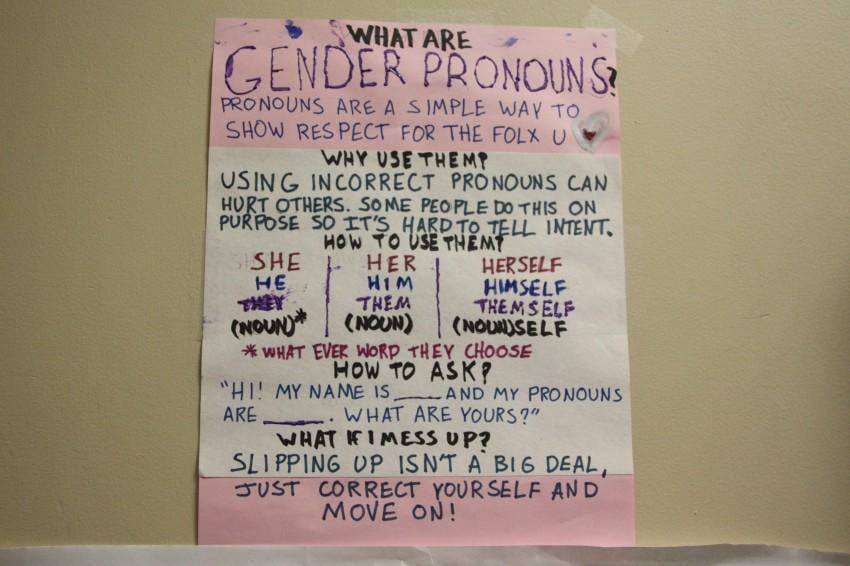 WHAT ARE
GENDER PRONOUNS?
PRONOUNS ARE A SIMPLE WAY TO
SHOW RESPECT FOR THE FOLX U
WHY USE THEM?
USING INCORRECT PRONOUNS CAN
HURT OTHERS. SOME PEOPLE DO THIS ON
PURPOSE SO IT'S HARD TO TELL INTENT.
HOW TO USE THEM?
SHE HER HERSELF
HE HIM HIMSELF
THEY THEM THEMSELF
(NOUN)* (NOUN) (NOUN)SELF
* WHAT EVER WORD THEY CHOOSE
HOW TO ASK?
"HI! MY NAME IS ____ AND MY PRONOUNS
ARE ____. WHAT ARE YOURS?"
WHAT IF I MESS UP?
SLIPPING UP ISN'T A BIG DEAL,
JUST CORRECT YOURSELF AND
MOVE ON!